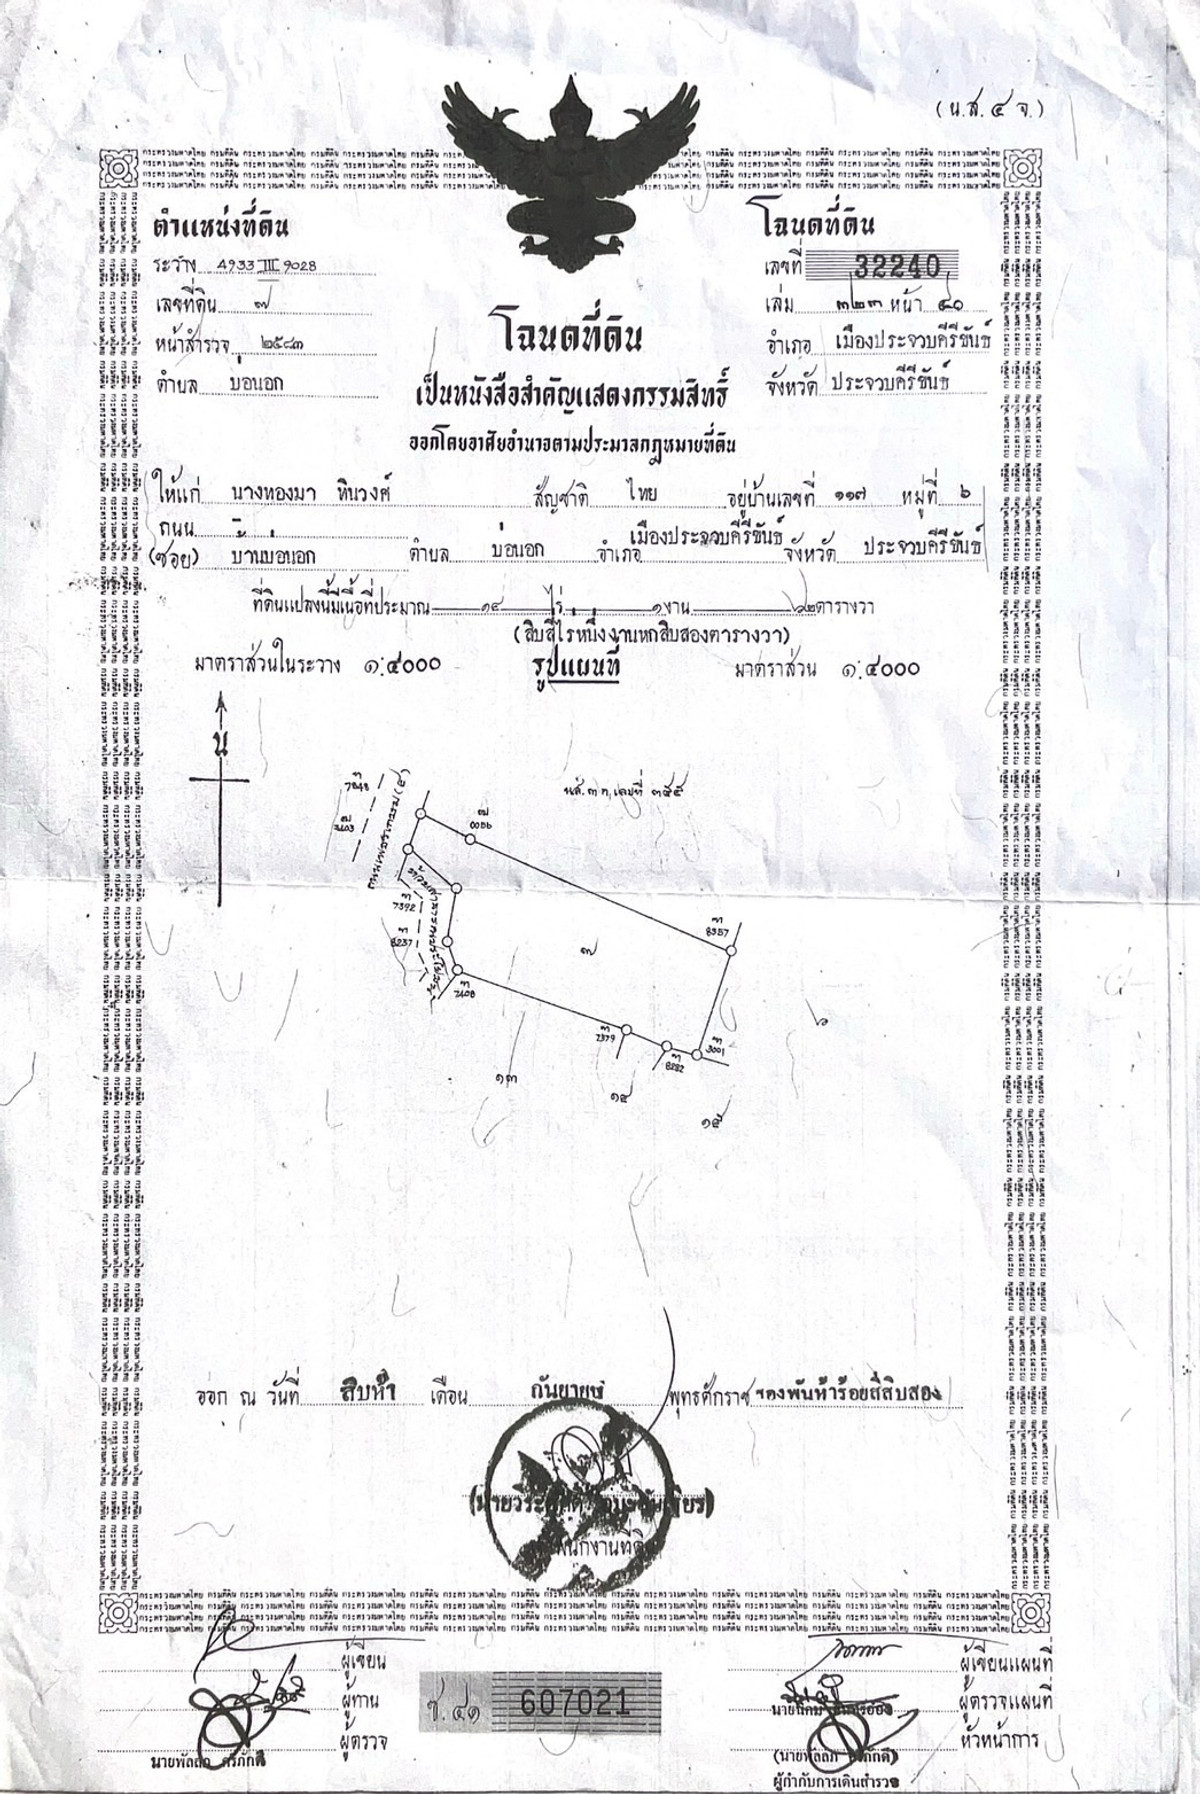 (น.ส. ๔ จ.)
ตำแหน่งที่ดิน
ระวาง 4933 III 9028
เลขที่ดิน ๗
หน้าสำรวจ ๒๕๘๓
ตำบล บ่อนอก
โฉนดที่ดิน
เลขที่ 32240
เล่ม ๓๒๓ หน้า ๔๐
อำเภอ เมืองประจวบคีรีขันธ์
จังหวัด ประจวบคีรีขันธ์
โฉนดที่ดิน
เป็นหนังสือสำคัญแสดงกรรมสิทธิ์
ออกโดยอาศัยอำนาจตามประมวลกฎหมายที่ดิน
ให้แก่ นางทองมา หินวงศ์ สัญชาติ ไทย อยู่บ้านเลขที่ ๑๑๗ หมู่ที่ ๖
ถนน -
(ซอย) บ้านบ่อนอก ตำบล บ่อนอก อำเภอ เมืองประจวบคีรีขันธ์ จังหวัด ประจวบคีรีขันธ์
ที่ดินแปลงนี้มีเนื้อที่ประมาณ ๑๔ ไร่ ๑ งาน ๖๒ ตารางวา
(สิบสี่ไร่หนึ่งงานหกสิบสองตารางวา)
มาตราส่วนในระวาง ๑:๔๐๐๐ รูปแผนที่ มาตราส่วน ๑:๔๐๐๐
น
น.ส.๓ ก. เลขที่ ๓๕๕
ถนนเพชรเกษม (๔)
๗
0056
ก
7392
ก
8237
ก
8357
๗
ก
7408
ก
ก
3001
ก
8282
๖
๑๓
๑๔
๑๕
ออก ณ วันที่ สิบห้า เดือน กันยายน พุทธศักราช สองพันห้าร้อยสี่สิบสอง
ผู้เขียน
ผู้ทาน
ผู้ตรวจ
ช.๔๑ 607021
ผู้เขียนแผนที่
ผู้ตรวจแผนที่
หัวหน้าการ
ผู้กำกับการเดินสำรวจ